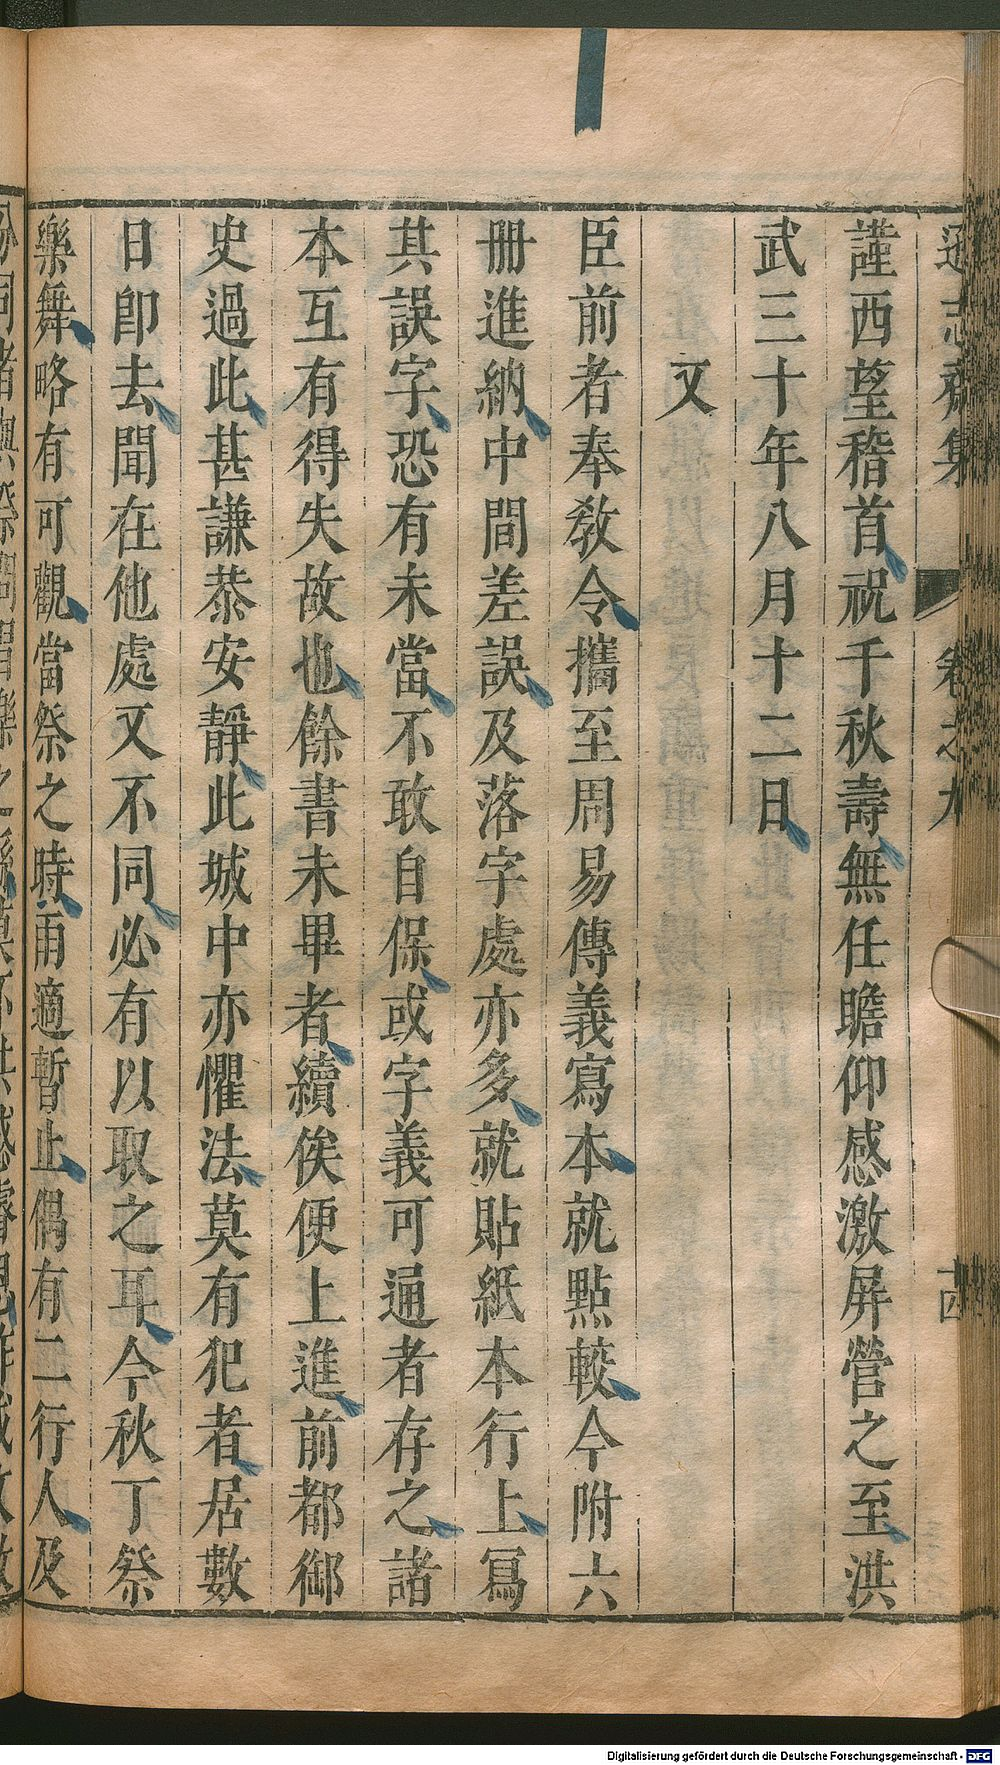 遜志齋集 卷之九 十四
謹西望稽首祝千秋壽無任瞻仰感激屏營之至洪
武三十年八月十二日
又
臣前者奉教令攜至周易傳義寫本就點較今附六
冊進納中間差誤及落字處亦多就貼紙本行上寫
其誤字恐有未當不敢自保或字義可通者存之諸
本互有得失故也餘書未畢者續俟便上進前都御
史過此甚謙恭安靜此城中亦懼法莫有犯者居數
日卽去聞在他處又不同必有以取之耳今秋丁祭
樂舞略有可觀當祭之時雨適暫止偶有二行人及
Digitalisierung gefördert durch die Deutsche Forschungsgemeinschaft - DFG